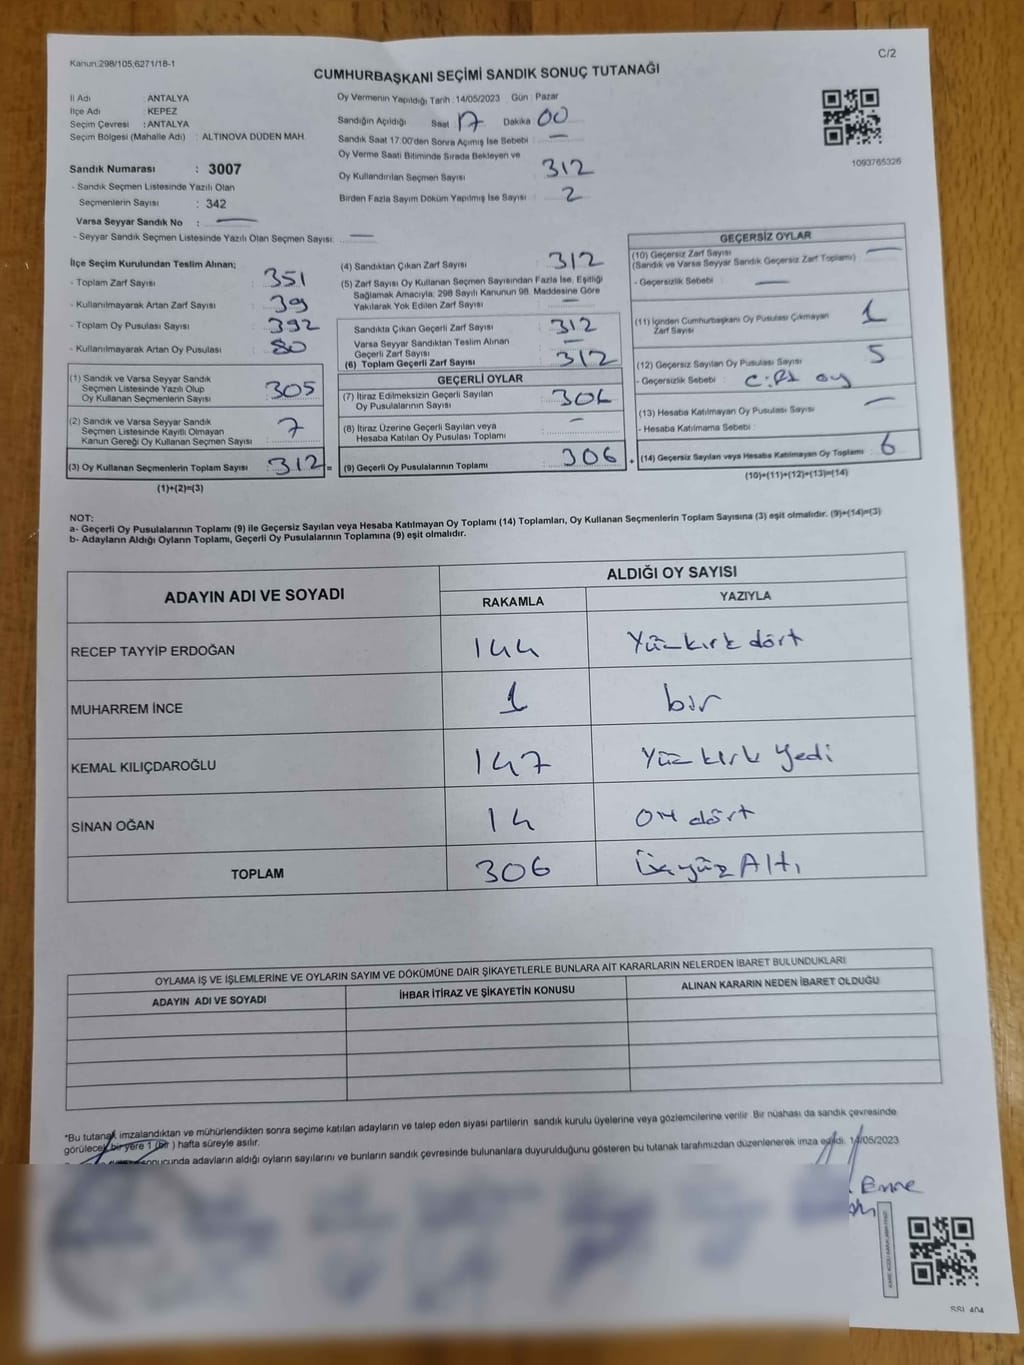 Kanun:298/105;6271/18-1
C/2
CUMHURBAŞKANI SEÇİMİ SANDIK SONUÇ TUTANAĞI
İl Adı : ANTALYA
İlçe Adı : KEPEZ
Seçim Çevresi : ANTALYA
Seçim Bölgesi (Mahalle Adı) : ALTINOVA DÜDEN MAH.
Sandık Numarası : 3007
- Sandık Seçmen Listesinde Yazılı Olan
Seçmenlerin Sayısı : 342
Varsa Seyyar Sandık No : —
- Seyyar Sandık Seçmen Listesinde Yazılı Olan Seçmen Sayısı: —
Oy Vermenin Yapıldığı Tarih : 14/05/2023 Gün : Pazar
Sandığın Açıldığı Saat 17 Dakika 00
Sandık Saat 17:00'den Sonra Açımış İse Sebebi : —
Oy Verme Saati Bitiminde Sırada Bekleyen ve
Oy Kullandırılan Seçmen Sayısı : 312
Birden Fazla Sayım Döküm Yapılmış İse Sayısı : 2
1093765326
İlçe Seçim Kurulundan Teslim Alınan;
- Toplam Zarf Sayısı : 351
- Kullanılmayarak Artan Zarf Sayısı : 39
- Toplam Oy Pusulası Sayısı : 392
- Kullanılmayarak Artan Oy Pusulası : 80
(1) Sandık ve Varsa Seyyar Sandık
Seçmen Listesinde Yazılı Olup
Oy Kullanan Seçmenlerin Sayısı : 305
(2) Sandık ve Varsa Seyyar Sandık
Seçmen Listesinde Kayıtlı Olmayan
Kanun Gereği Oy Kullanan Seçmen Sayısı : 7
(3) Oy Kullanan Seçmenlerin Toplam Sayısı : 312 =
(1)+(2)=(3)
(4) Sandıktan Çıkan Zarf Sayısı : 312
(5) Zarf Sayısı Oy Kullanan Seçmen Sayısından Fazla İse, Eşitliği
Sağlamak Amacıyla, 298 Sayılı Kanunun 98. Maddesine Göre
Yakılarak Yok Edilen Zarf Sayısı : —
Sandıkta Çıkan Geçerli Zarf Sayısı : 312
Varsa Seyyar Sandıktan Teslim Alınan
Geçerli Zarf Sayısı : —
(6) Toplam Geçerli Zarf Sayısı : 312
GEÇERLİ OYLAR
(7) İtiraz Edilmeksizin Geçerli Sayılan
Oy Pusulalarının Sayısı : 306
(8) İtiraz Üzerine Geçerli Sayılan veya
Hesaba Katılan Oy Pusulası Toplamı : —
(9) Geçerli Oy Pusulalarının Toplamı : 306 +
GEÇERSİZ OYLAR
(10) Geçersiz Zarf Sayısı : —
(Sandık ve Varsa Seyyar Sandık Geçersiz Zarf Toplamı)
- Geçersizlik Sebebi : —
(11) İçinden Cumhurbaşkanı Oy Pusulası Çıkmayan
Zarf Sayısı : 1
(12) Geçersiz Sayılan Oy Pusulası Sayısı : 5
- Geçersizlik Sebebi : oy
(13) Hesaba Katılmayan Oy Pusulası Sayısı : —
- Hesaba Katılmama Sebebi :
(14) Geçersiz Sayılan veya Hesaba Katılmayan Oy Toplamı : 6
(10)+(11)+(12)+(13)=(14)
NOT:
a- Geçerli Oy Pusulalarının Toplamı (9) ile Geçersiz Sayılan veya Hesaba Katılmayan Oy Toplamı (14) Toplamları, Oy Kullanan Seçmenlerin Toplam Sayısına (3) eşit olmalıdır. (9)+(14)=(3)
b- Adayların Aldığı Oyların Toplamı, Geçerli Oy Pusulalarının Toplamına (9) eşit olmalıdır.
ADAYIN ADI VE SOYADI
ALDIĞI OY SAYISI
RAKAMLA YAZIYLA
RECEP TAYYİP ERDOĞAN 144 Yüzkırk dört
MUHARREM İNCE 1 bir
KEMAL KILIÇDAROĞLU 147 Yüz kırk yedi
SİNAN OĞAN 14 on dört
TOPLAM 306 Üçyüz Altı
OYLAMA İŞ VE İŞLEMLERİNE VE OYLARIN SAYIM VE DÖKÜMÜNE DAİR ŞİKAYETLERLE BUNLARA AİT KARARLARIN NELERDEN İBARET BULUNDUKLARI
ADAYIN ADI VE SOYADI İHBAR İTİRAZ VE ŞİKAYETİN KONUSU ALINAN KARARIN NEDEN İBARET OLDUĞU
*Bu tutanak imzalandıktan ve mühürlendikten sonra seçime katılan adayların ve talep eden siyasi partilerin sandık kurulu üyelerine veya gözlemcilerine verilir. Bir nüshası da sandık çevresinde
görülecek bir yere 1 (bir) hafta süreyle asılır.
sonucunda adayların aldığı oyların sayılarını ve bunların sandık çevresinde bulunanlara duyurulduğunu gösteren bu tutanak tarafımızdan düzenlenerek imza edildi. 14/05/2023
Emre